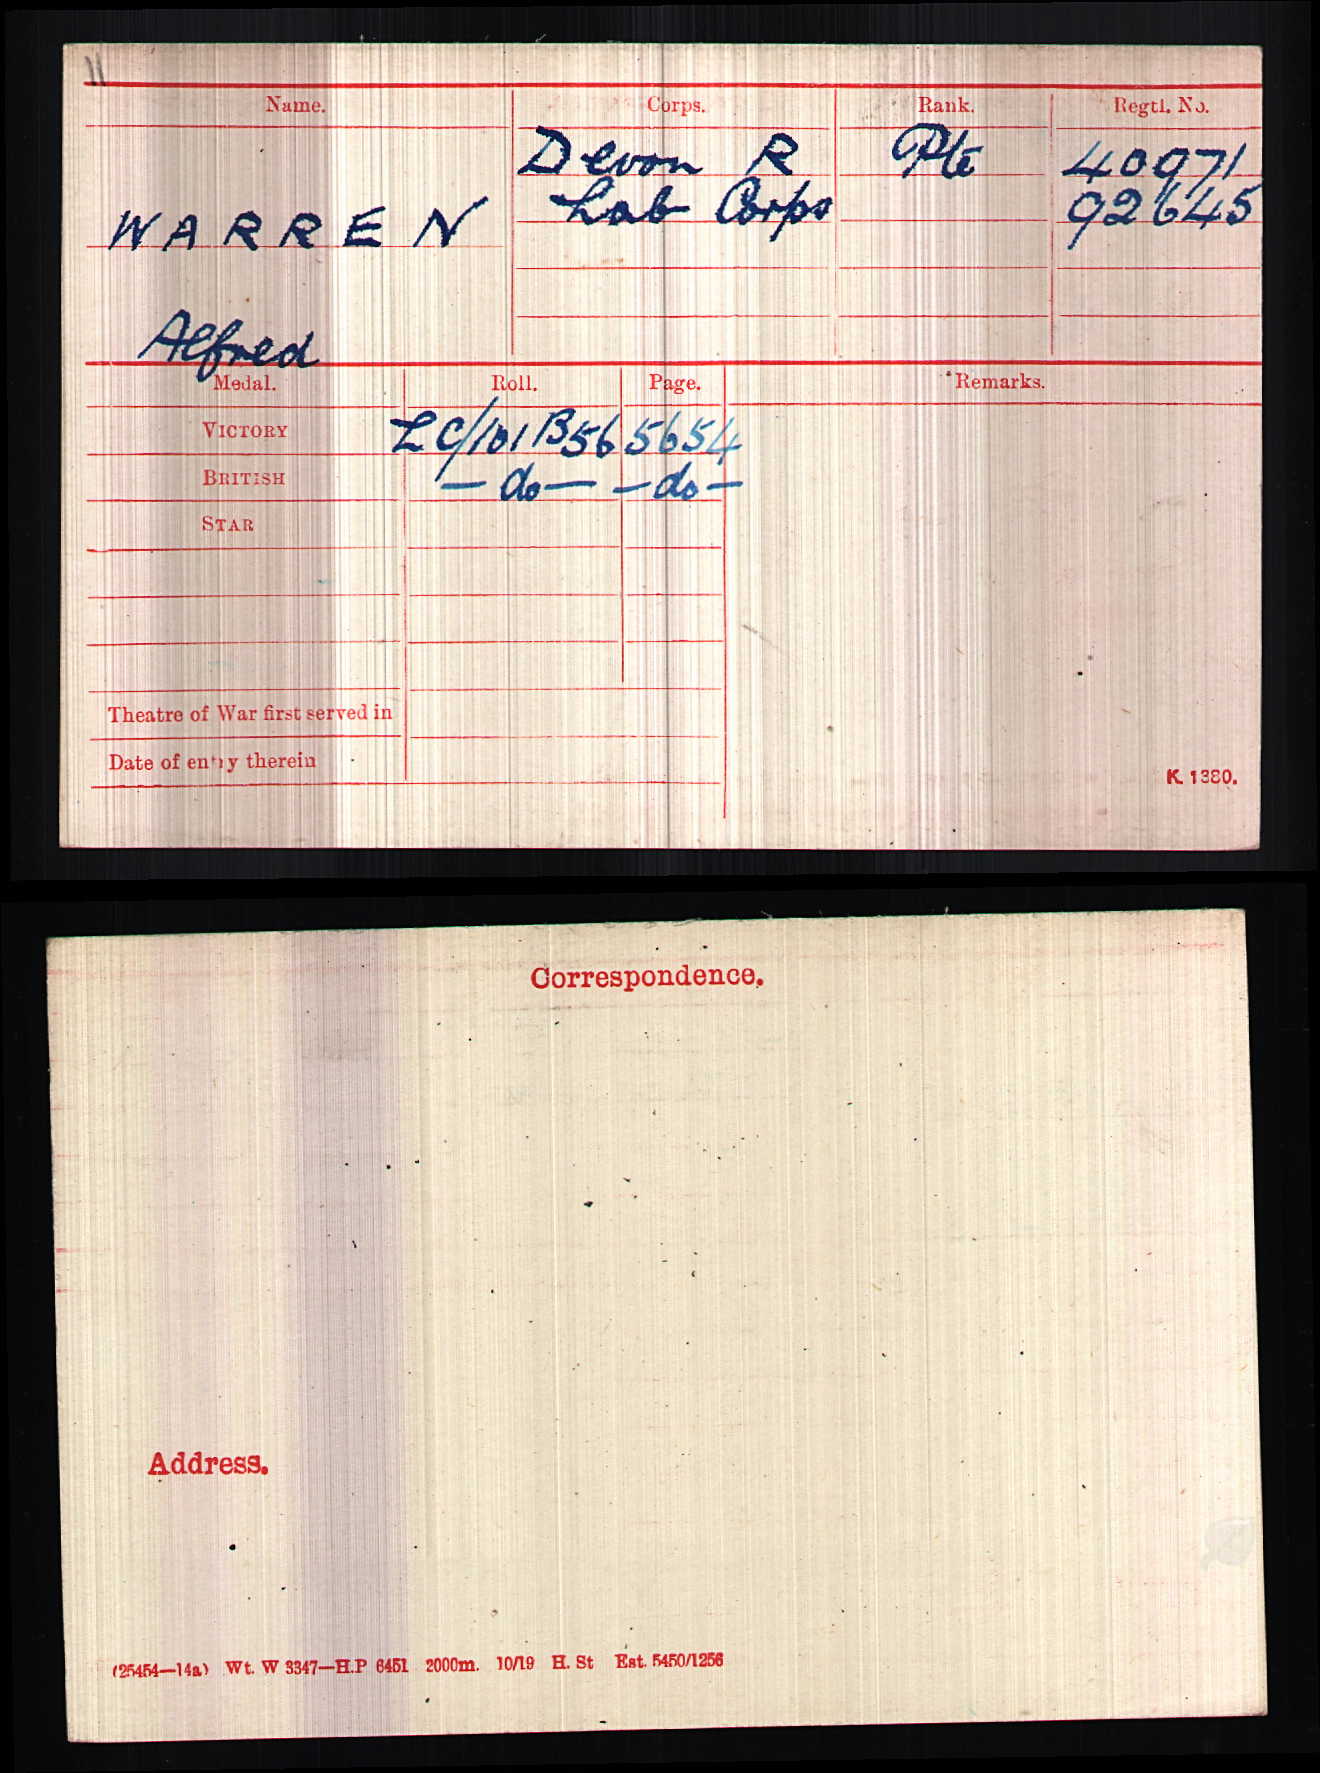 11
Name. Corps. Rank. Regtl. No.
Devon R Pte 40971
WARREN Lab Corps 92645
Alfred
Medal. Roll. Page. Remarks.
VICTORY LC/101B56 5654
BRITISH — do — — do —
STAR
Theatre of War first served in
Date of entry therein
K. 1380.
Correspondence.
Address.
(25454—14a) Wt. W 3347—H.P 6451 2000m. 10/19 H. St Est. 5450/1256